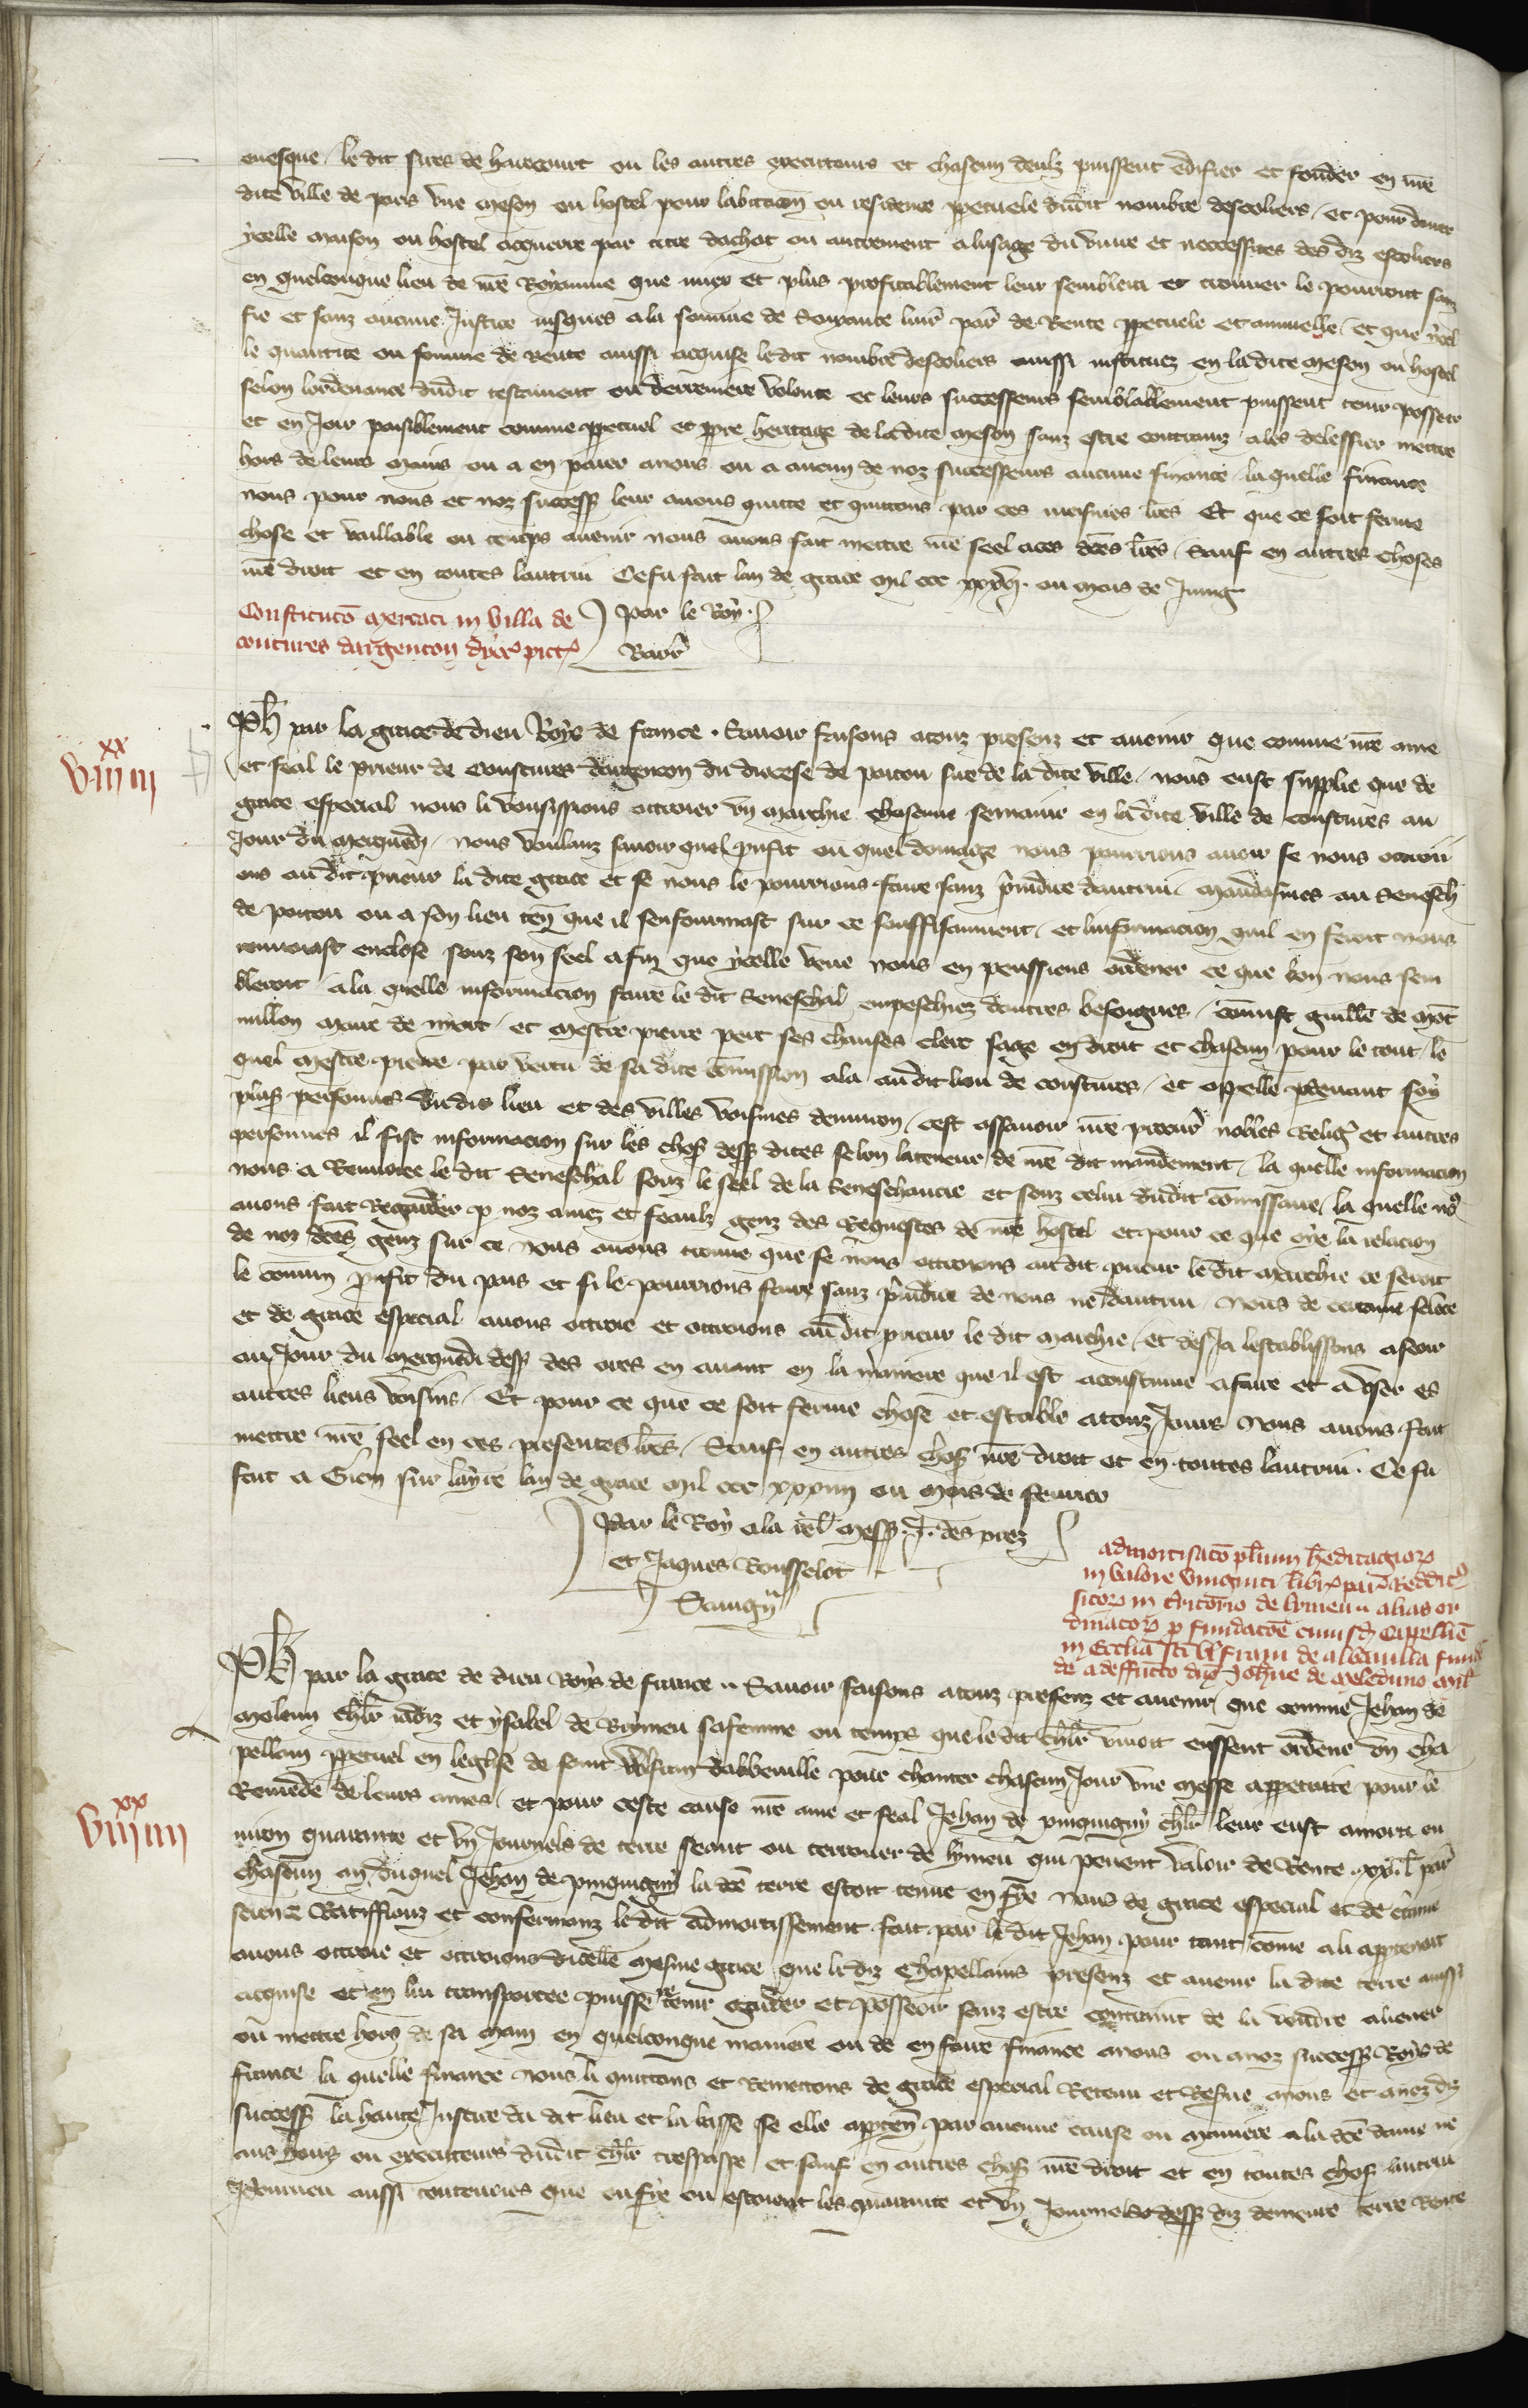 euesque le dit sires de harecourt ou les autres executeurs et chascun deulz puissent edifier et fonder en nr̃e
dite ville de paris vne meson ou hostel pour labitacion ou residence ppetuele dudit nombre descoliers et pour
ycelle maison ou hostel acquerre par titre dachat ou autrement a lusage du viure et neccessites des diz escoliers
en quelconque lieu de nr̃e Royaume que miex et plus profitablement leur semblera et trouuer le pourront sanz
fie et sanz aucune Justice iusques a la somme de Soixante liur̃ par̃ de Rente ppetuele et annuelle et que ycel
le quantite ou somme de rente aussi acquise le dit nombre descoliers aussi instituez en la dite meson ou hostel
selon lordenance dudit testament ou derreniere volonte et leurs successeurs semblablement puissent tenir posseer
et en Joir paisiblement comme ppetuel et ppre heritage de la dite meson sanz estre contrainz a les delessier mettre
hors de leurs mains ou a en paier a nous ou a aucun de noz successeurs aucune finance la quelle finance
nous pour nous et noz success̃ leur auons quitte et quittons par ces mesmes lr̃es Et que ce soit ferme
chose et vaillable ou temps auenir nous auons fait mettre nr̃e seel a ces dc̃es lr̃es Sauf en autres choses
nr̃e droit et en toutes lautrui Ce fu fait lan de grace mil ccc ou mois de Juing
Constitucõ mercati in villa de
coutures dargenton dyoc̃ pict̃
par le Roy
Barr̃
Ph̃ par la grace de dieu Roys de france . Sauoir faisons a touz presenz et auenir que comme nr̃e ame
viii xx iii
et feal le prieur de Coustures dargenton du diocese de poitou sire de la dite ville nous eust supplie que de
grace especial nous li vousissions ottroier vn marchie chascune semaine en la dite ville de coustures au
Jour du merquedy nous voulanz sauoir quel profit ou quel domage nous pourrions auoir se nous ottroii
ons au dit prieur la dite grace et se nous le pourrions faire sanz p̃iudice dautrui mandasmes au Senesch̃
de poitou ou a son lieu ten̄ que il senfourmast sur ce souffisaument et linformacion quil en feroit nous
renuoiast enclose souz son seel afin que ycelle veue nous en peussiens ordener ce que bon nous sem
bleroit a la quelle informacion faire le dit Seneschal empeschiez dautres besoignes com̃ist guillẽ de mot̃
millon maire de niort et mestre pierre petit ses chauses clerc sage en droit et chascun pour le tout le
quel mestre pierre par vertu de sa dite com̃ission ala au dit lieu de coustures et apelle pdeuant soy
plus̃ personnes du dit lieu et des villes voisines denuiron cest assauoir nr̃e procur̃ nobles Relig̃ et autres
personnes il fist informacion sur les chos̃ dess̃ dites selon la teneur de nr̃e dit mandement la quelle informacion
nous a Renuoiee le dit Seneschal souz le seel de la Seneschaucie et souz celui dudit com̃issaire la quelle no9
auons fait Regarder p noz amez et feaulz genz des Requestes de nr̃e hostel et pour ce que oye la relacion
de noz dc̃es genz sur ce nous auons trouue que se nous ottroions au dit prieur le dit marchie ce seroit
le commun profit du pais et si le pourrions faire sanz p̃iudice de nous ne dautrui Nous de certaine science
et de grace especial auons ottroie et ottroions au dit prieur le dit marchie et des Ja lestablissons a seoir
au Jour du merquedi dess̃ des ores en auant en la maniere que il est acoustume a faire et a vser es
autres lieus voisins Et pour ce que ce soit ferme chose et estable a touz Jours Nous auons fait
mettre nr̃e seel en ces presentes lr̃es Sauf en autres chos̃ nr̃e droit et en toutes lautrui . Ce fu
fait a Gien sur layre lan de grace mil ccc xxxiiii ou mois de feurier
par le Roy a la rel̃ mess̃ . J . des prez
et Jaques Rousselot
Sauigny
admortisacõ pl̃ium h̃editagiorꝝ
in valore viuginti libr̃ par̃ Reddit̃
sitorꝝ in t̃ritorio de lymeu alias or
dinatorꝝ p fundacõe cuiusd̃ Cappellie
in Ecclia sc̃i Wlfranni de abbauilla fund̃
de a deffuncto dño Johñe de meleduno mil̃
Ph̃ par la grace de dieu Roys de france Sauoir faisons a touz presenz et auenir que comme Jehan de
meleun chl̃r iadiz et ysabel de Brimeu sa femme ou temps que le dit chl̃r viuoit eussent ordene vn cha
pellain ppetuel en leglise de saint Wlfran dabbeuille pour chanter chascun Jour vne messe appetuite pour le
viii xx iiii
Remede de leurs ames et pour ceste cause nr̃e ame et feal Jehan de pinquigny chl̃r leur eust amorti en
uiron quarante et vn Journels de terre seant ou terrouer de lymeu qui peuent valoir de Rente xx l̃ par̃
chascun an duquel Jehan de pinquigny la dc̃e terre estoit tenue en fye Nous de grace especial et de c̃taine
science Ratiffiouz et confermonz le dit admortissement fait par le dit Jehan pour tant come a li apptenoit
auons ottroie et ottroions dicelle mesme grace que li diz Chapellains presenz et auenir la dite terre aussi
acquise et en lui transportee puisse tenir garder et posseoir sanz estre contraint de la vendre aliener
ou mettre hors de sa main en quelconque maniere ou de en faire finance a nous ou a noz success̃ Roys de
france la quelle finance nous li quittons et Remettons de grace especial Retenu et Reserue a nous et a noz diz
success̃ la haute Justice du dit lieu et la basse se elle apparten̄ par aucune cause ou maniere a la dc̃e dame ne
aus hoirs ou executeurs dudit chl̃r trespasse et sauf en autres chos̃ nr̃e droit et en toutes chos̃ lautrui
aussi que en fye ou estoient les quarante et vn Journels dess̃ diz demeure terre